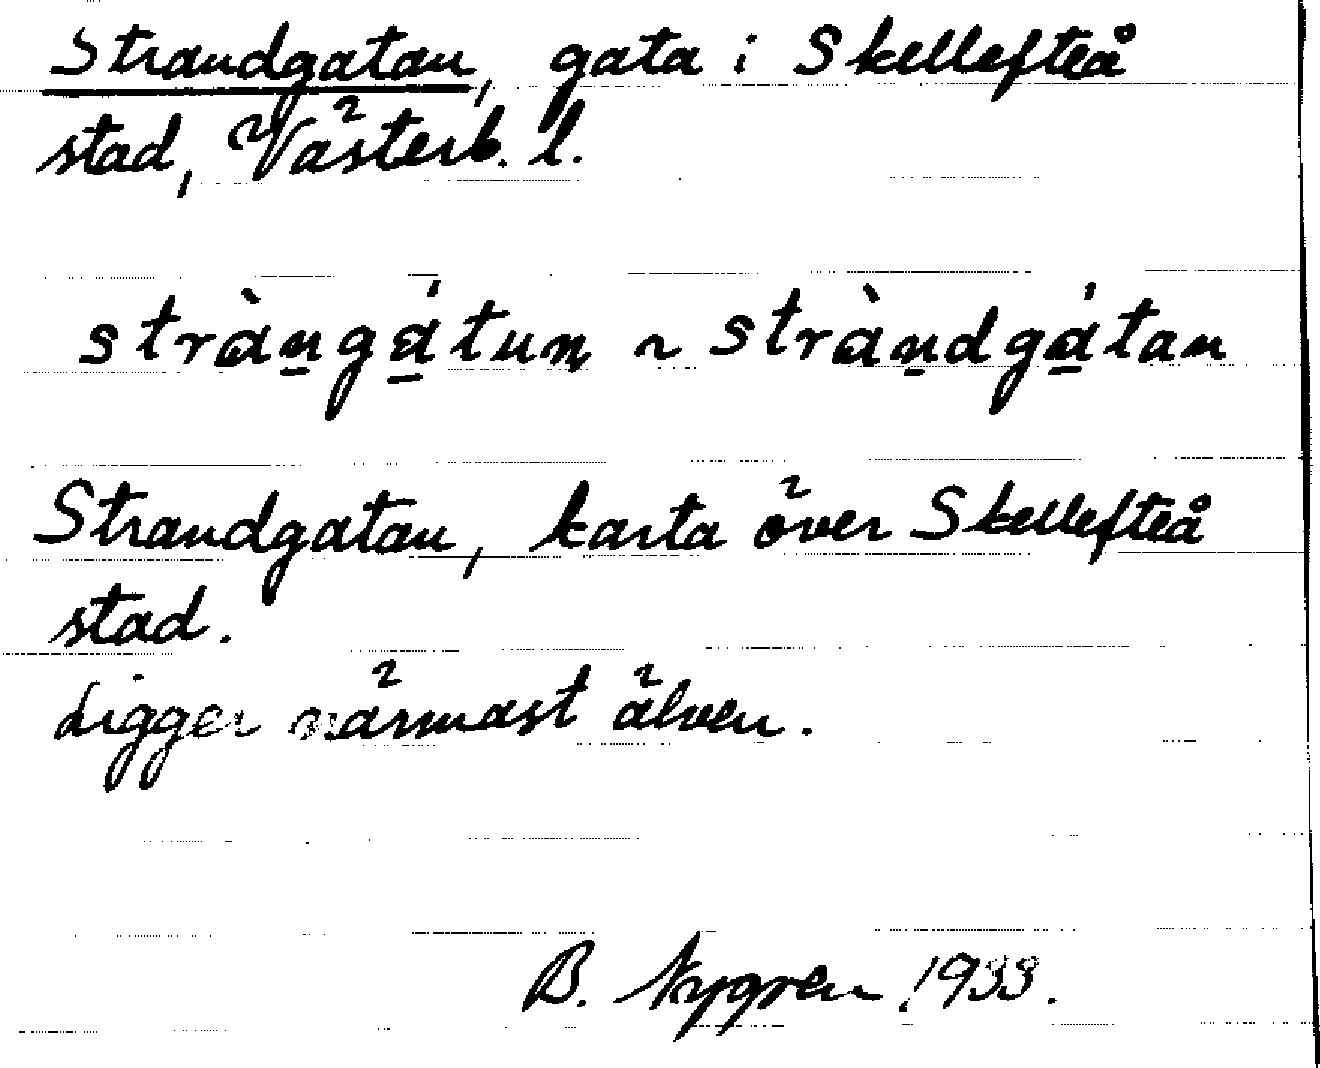 Strandgatan, gata i Skellefteå
stad, Västerb. l.
stràn̲gá̲tun ~ stràn̲dgá̲tan
Strandgatan, karta över Skellefteå
stad.
Ligger närmast älven.
B. Nygren 1933.